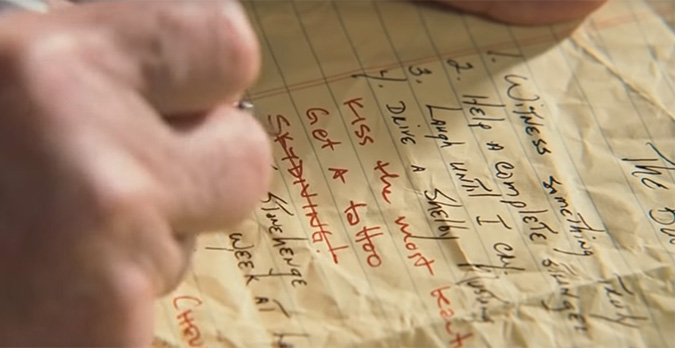 The
1. Witness something truly
2. Help a complete stranger
3. Laugh until I cry
4. Drive a Shelby Mustang
Kiss the most beaut
Get A tattoo
SKYDIVING!
Stonehenge
Week at